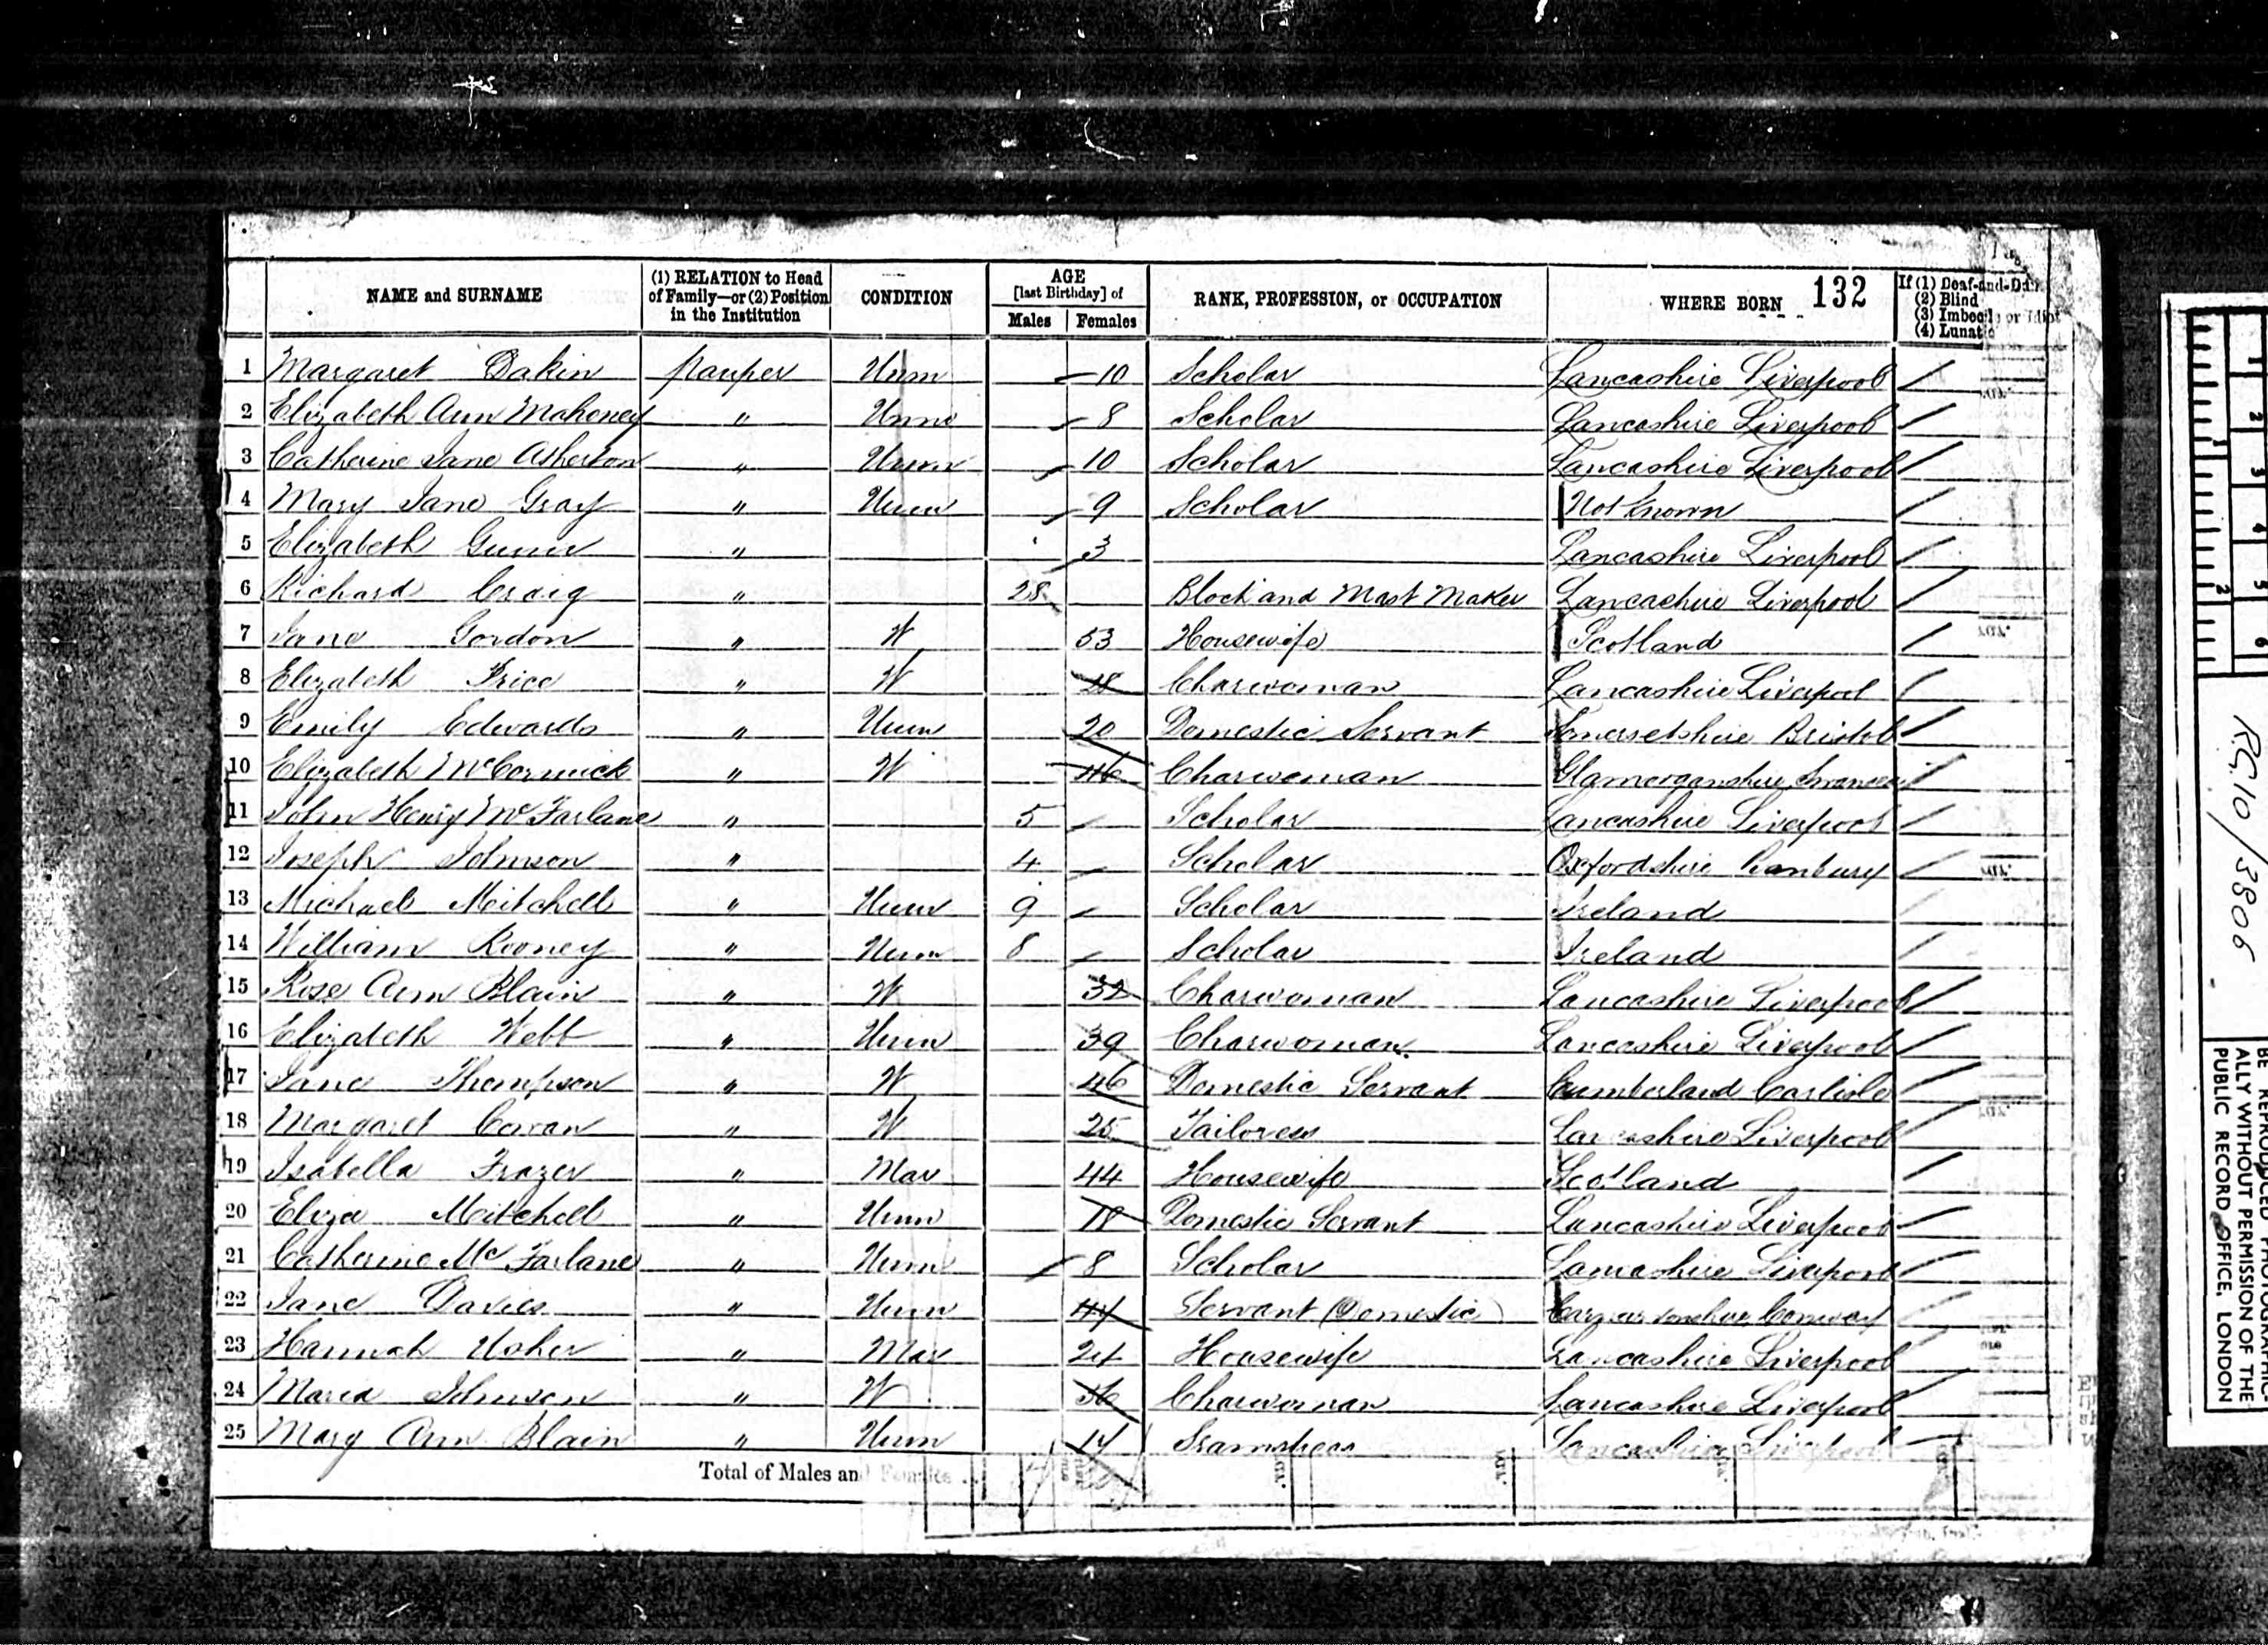 132
NAME and SURNAME | (1) RELATION to Head of Family—or (2) Position in the Institution | CONDITION | AGE [last Birthday] of Males | Females | RANK, PROFESSION, or OCCUPATION | WHERE BORN | If (1) Deaf-and-Dumb (2) Blind (3) Imbecile or Idiot (4) Lunatic
1 Margaret Dakin pauper Unm 10 Scholar Lancashire Liverpool
2 Elizabeth Ann Mahoney " Unm 8 Scholar Lancashire Liverpool
3 Catherine Jane Atherton " Unm 10 Scholar Lancashire Liverpool
4 Mary Jane Gray " Unm 9 Scholar Not Known
5 Elizabeth Gunn " 3 Lancashire Liverpool
6 Richard Craig " 28 Block and Mast Maker Lancashire Liverpool
7 Jane Gordon " W 53 Housewife Scotland
8 Elizabeth Price " W Charwoman Lancashire Liverpool
9 Emily Edwards " Unm 20 Domestic Servant Somersetshire Bristol
10 Elizabeth McCormick " W 46 Charwoman Glamorganshire Swansea
11 John Henry McFarlane " 5 Scholar Lancashire Liverpool
12 Joseph Johnson " 4 Scholar Oxfordshire Banbury
13 Michael Mitchell " Unm 9 Scholar Ireland
14 William Rooney " Unm 8 Scholar Ireland
15 Rose Ann Blain " W 32 Charwoman Lancashire Liverpool
16 Elizabeth Webb " Unm 39 Charwoman Lancashire Liverpool
17 Jane Thompson " W 46 Domestic Servant Cumberland Carlisle
18 Margaret Cowan " W 25 Tailoress Lancashire Liverpool
19 Isabella Frazer " Mar 44 Housewife Scotland
20 Eliza Mitchell " Unm 18 Domestic Servant Lancashire Liverpool
21 Catherine McFarlane " Unm 8 Scholar Lancashire Liverpool
22 Jane Davies " Unm 44 Servant (Domestic) Carnarvonshire Conway
23 Hannah Usher " Mar 24 Housewife Lancashire Liverpool
24 Maria Johnson " W 56 Charwoman Lancashire Liverpool
25 Mary Ann Blain " Unm 17 Lancashire Liverpool
Total of Males and Females
RG10/3806
BE REPRODUCED PHOTOGRAPHIC-
ALLY WITHOUT PERMISSION OF THE
PUBLIC RECORD OFFICE, LONDON